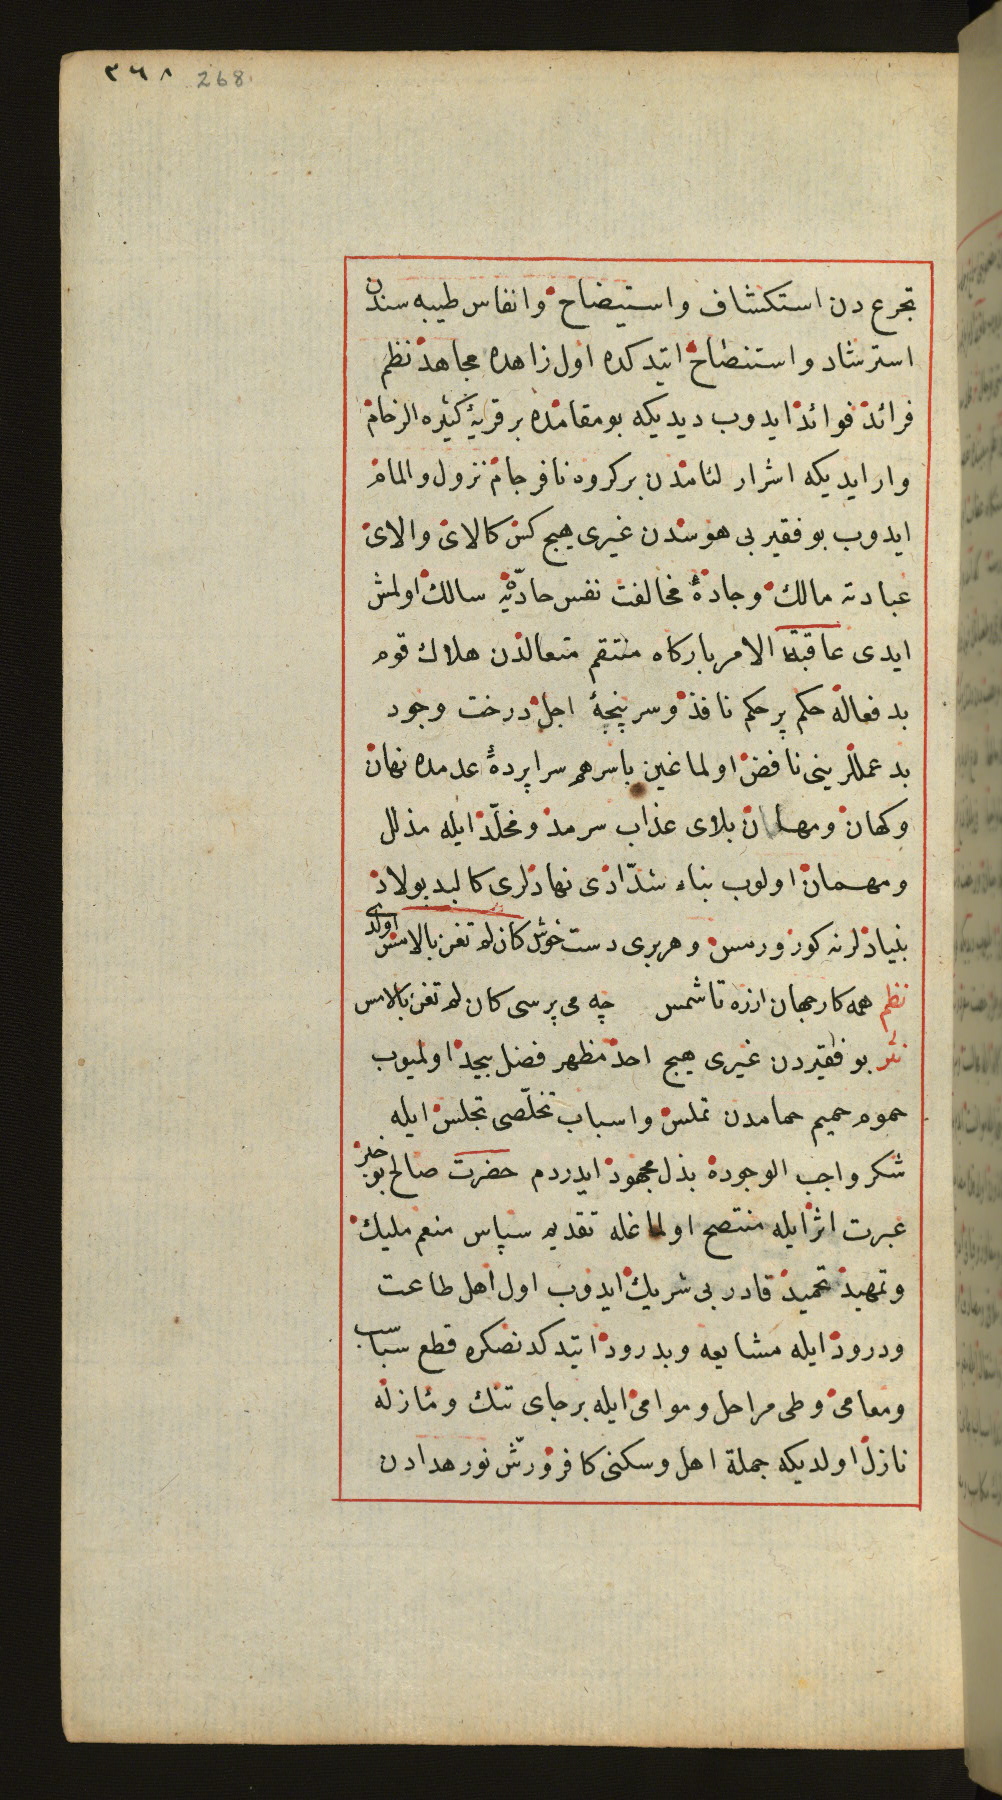 ٣٦٨ 268
تجرع دن استكشاف واستيضاح وانفاس طيبه سندن
استرشاد واستنضاح ايتدكده اول زاهده مجاهد نظم
فرائد فوائد ايدوب ديديكه بو مقامده بر قريۀ كثيره الزخام
وار ايديكه اشرار لئامدن بر كروه نافرجام نزول والمام
ايدوب بو فقير بى هوسدن غيرى هيچ كس كالاى والاى
عبادته مالك وجادۀ مخالفت نفس حادّيه سالك اولمش
ايدى عاقبة الامر باركاه منتقم متعالدن هلاك قوم
بد فعاله حكم پر حكم نافذ وسر پنجۀ اجل درخت وجود
بد عمللرينى نافض اولماغين باسرهم سراپردۀ عدمده نهان
وكهان ومهان بلاى عذاب سرمد ومخلّد ايله مذلل
ومهمان اولوب بناء شدّادى نهادلرى كالبد بولاد
بنيادلرنه كوز ورمس وهر برى دست خوش كان لم تغن بالامس اولدى
نظم همه كار جهان ازره تا شمس چه مى پرسى كان لم تغن بالامس
نثر بو فقيردن غيرى هيچ احد مظهر فضل بيحد اولميوب
حموم حميم حمامدن تملس واسباب تخلّصى تجلس ايله
شكر واجب الوجوده بذل مجهود ايدردم حضرت صالح بو خبر
عبرت اثر ايله منتصح اولماغله تقديم سپاس منعم مليك
وتمهيد تحميد قادر بى شريك ايدوب اول اهل طاعت
ودرود ايله مشايعه وبدرود ايتدكدنصكره قطع سباسب
ومعامى وطى مراحل وموامى ايله بر جاى تنك ومنازله
نازل اولديكه جملة اهل وسكنى كافر ورشّ نور هدادن